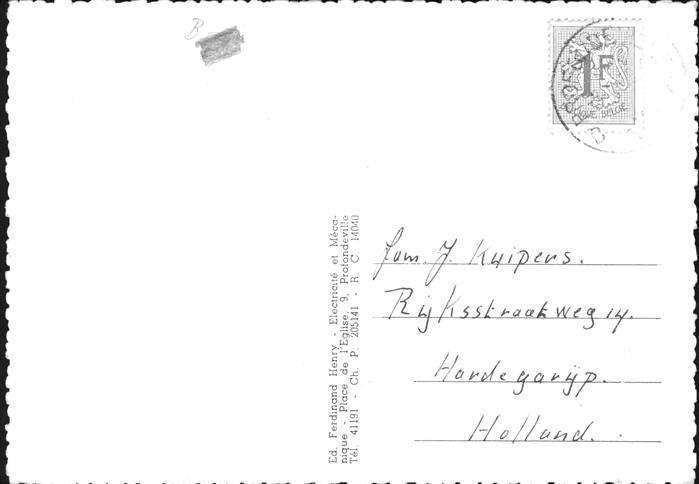 B
1F
BELGIË
Ed. Ferdinand Henry - Electricité et Méca-
nique - Place de l'Eglise, 9, Profondeville
Tél. 41191 - Ch. P. 205141 - R. C. 14040
fam. J. Kuipers.
Rijksstraatweg 14.
Hardegarijp.
Holland.